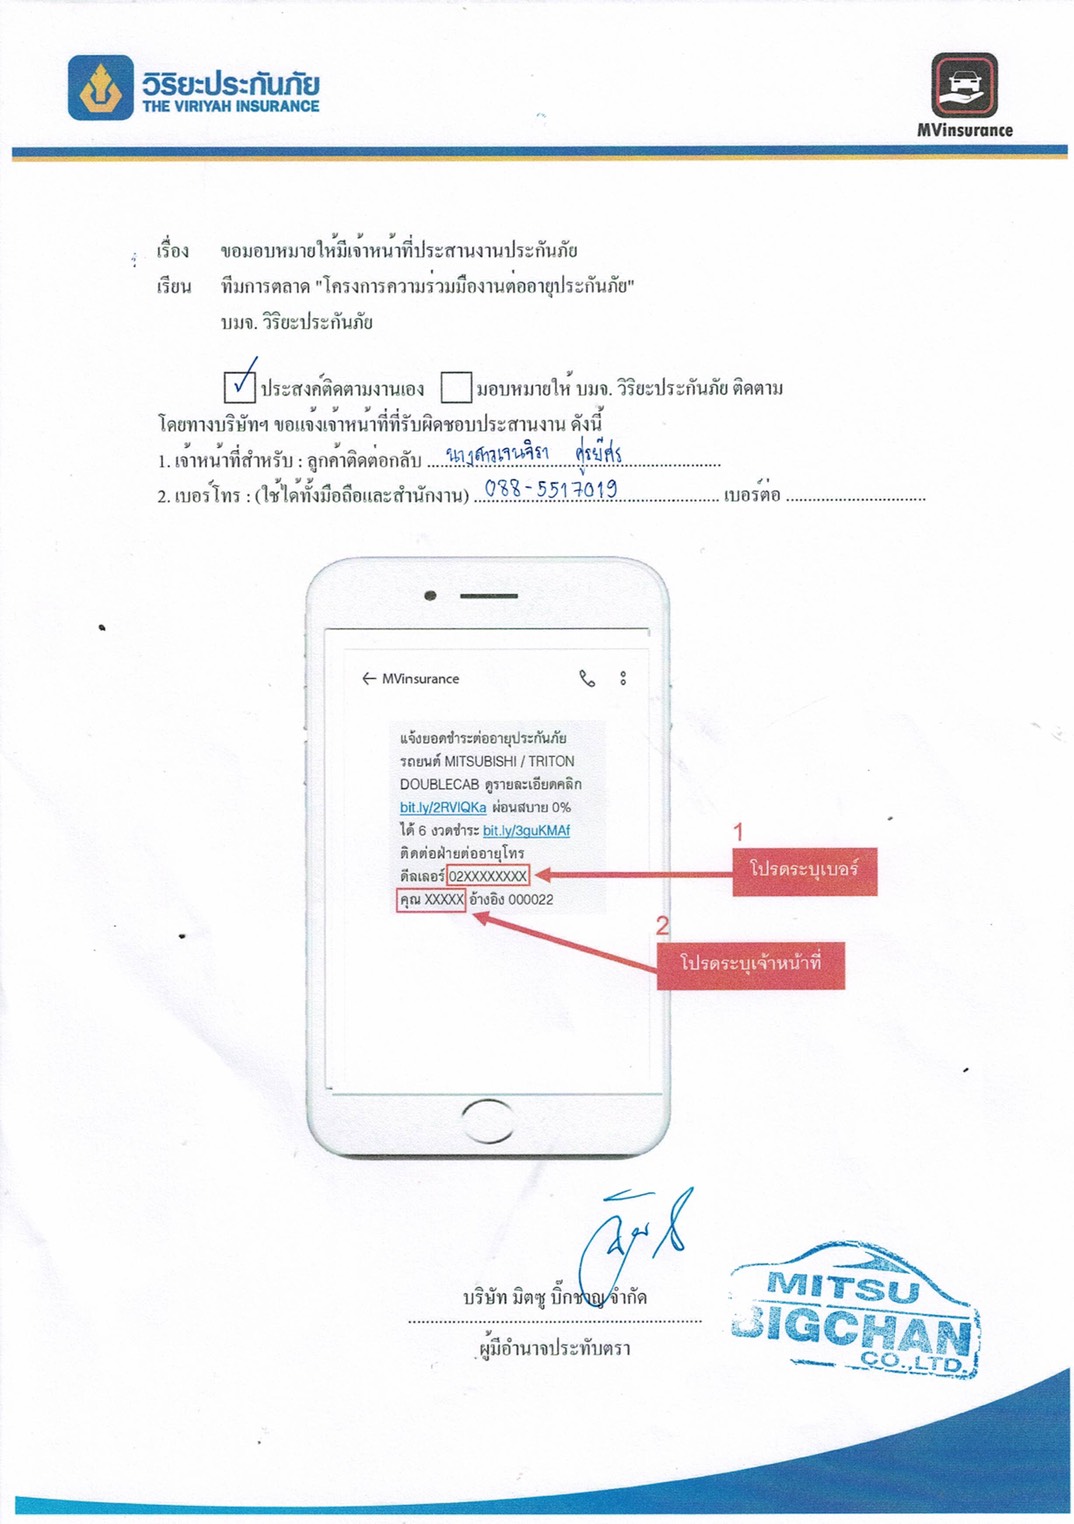 วิริยะประกันภัย
THE VIRIYAH INSURANCE
MVinsurance
เรื่อง ขอมอบหมายให้มีเจ้าหน้าที่ประสานงานประกันภัย
เรียน ทีมการตลาด "โครงการความร่วมมืองานต่ออายุประกันภัย"
บมจ. วิริยะประกันภัย
✓ ประสงค์ติดตามงานเอง มอบหมายให้ บมจ. วิริยะประกันภัย ติดตาม
โดยทางบริษัทฯ ขอแจ้งเจ้าหน้าที่ที่รับผิดชอบประสานงาน ดังนี้
1. เจ้าหน้าที่สำหรับ : ลูกค้าติดต่อกลับ นางสาวเจนจิรา
2. เบอร์โทร : (ใช้ได้ทั้งมือถือและสำนักงาน) 088-5517019 เบอร์ต่อ
← MVinsurance
แจ้งยอดชำระต่ออายุประกันภัย
รถยนต์ MITSUBISHI / TRITON
DOUBLECAB ดูรายละเอียดคลิก
bit.ly/2RVIQKa ผ่อนสบาย 0%
ได้ 6 งวดชำระ bit.ly/3guKMAf
ติดต่อฝ่ายต่ออายุโทร
ดีลเลอร์ 02XXXXXXXX
คุณ XXXXX อ้างอิง 000022
1
โปรดระบุเบอร์
2
โปรดระบุเจ้าหน้าที่
บริษัท มิตซู บิ๊กชาญ จำกัด
ผู้มีอำนาจประทับตรา
MITSU
BIGCHAN
CO.,LTD.